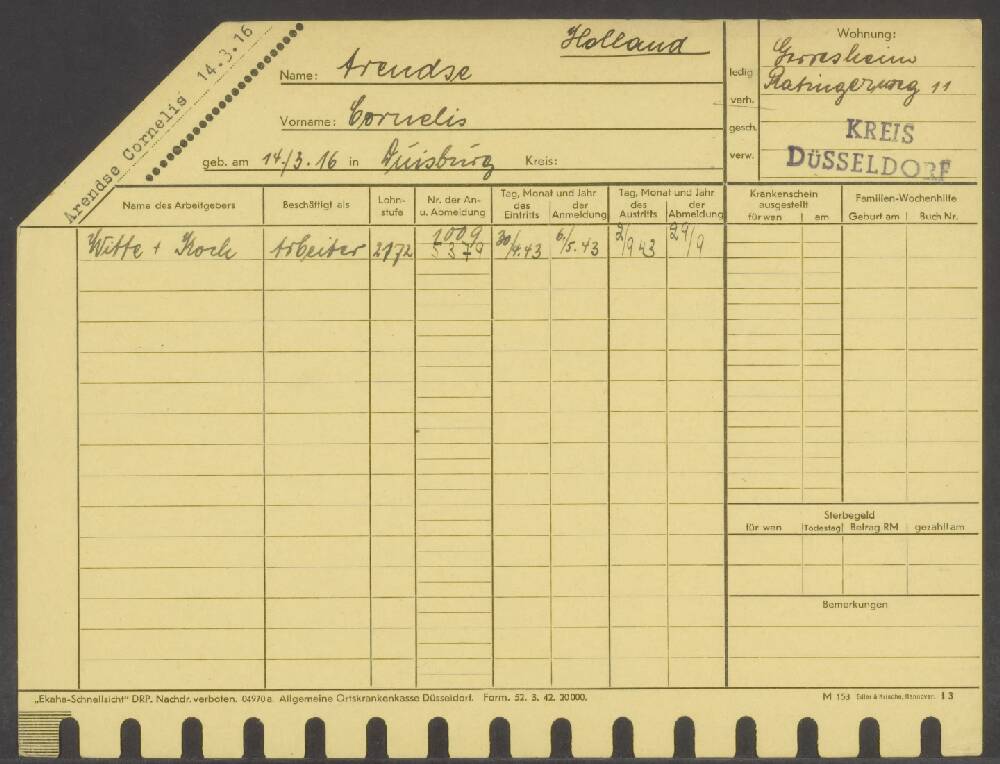 Arendse Cornelis 14.3.16
Holland
Name: Arendse
Vorname: Cornelis
geb. am 14./3.16 in Duisburg Kreis:
ledig
verh.
gesch.
verw.
Wohnung:
Gerresheim
Ratingerweg 11
KREIS
DÜSSELDORF
Name des Arbeitgebers
Beschäftigt als
Lohn-
stufe
Nr. der An-
u. Abmeldung
Tag, Monat und Jahr
des Eintritts
der Anmeldung
Tag, Monat und Jahr
des Austritts
der Abmeldung
Krankenschein
ausgestellt
für wen am
Familien-Wochenhilfe
Geburt am Buch Nr.
Witte + Koch Arbeiter 2172 1009 5379 30/4.43 6/5.43 2/9 43 29/9
Sterbegeld
für wen Todestag Betrag RM gezahlt am
Bemerkungen
„Ekaha-Schnellsicht" DRP. Nachdr. verboten. 04970a. Allgemeine Ortskrankenkasse Düsseldorf. Form. 52. 3. 42. 20000.
M 153 Edler & Krische, Hannover. I 3